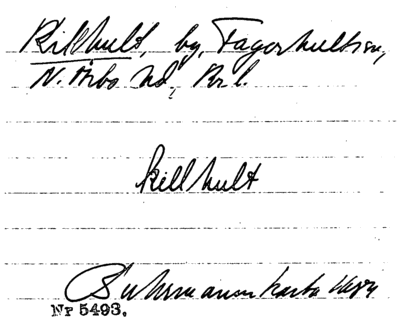 Killhult, by, Fagerhults sn,
N. Åsbo hd, Kr. l.
Killhult
Buhrmanns karta
Nr 5493.